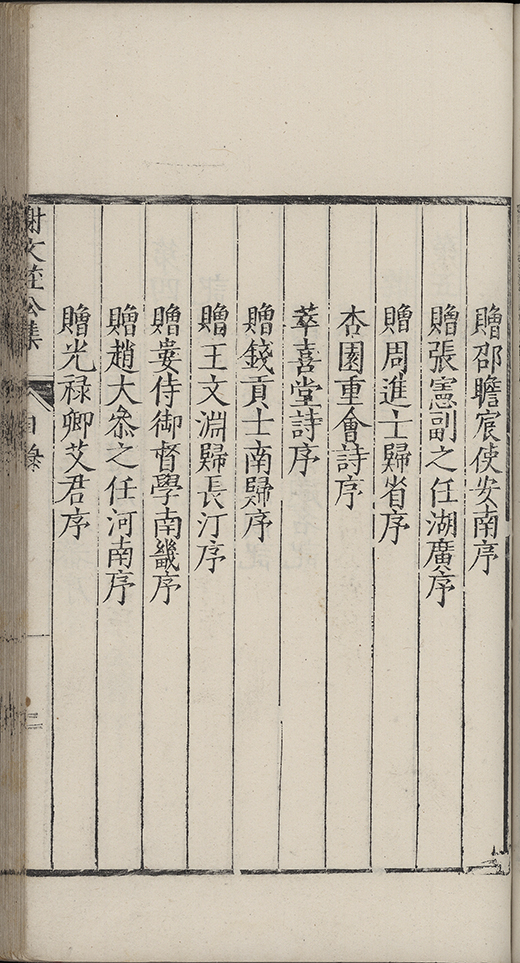 贈邵瞻宸使安南序
贈張憲副之任湖廣序
贈周進士歸省序
杏園重會詩序
萃喜堂詩序
贈錢貢士南歸序
贈王文淵歸長汀序
贈婁侍御督學南畿序
贈趙大叅之任河南序
贈光祿卿艾君序
謝文莊公集
目錄
三